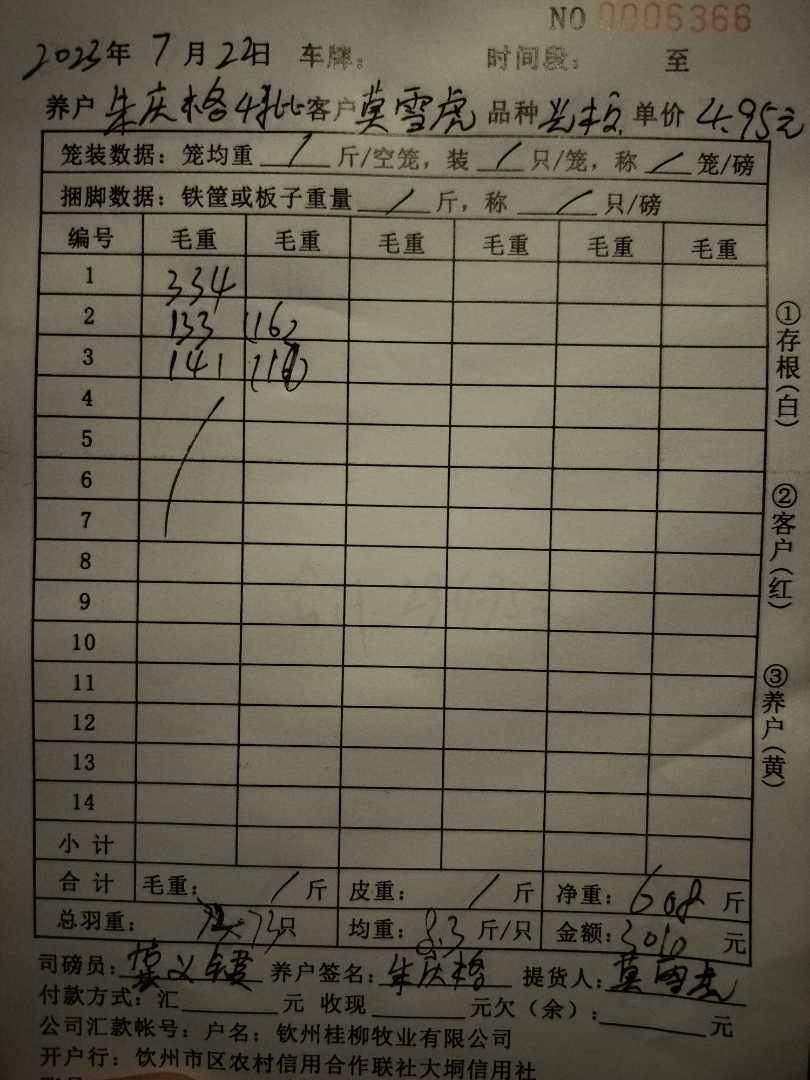 NO 0006366
2023年 7月 22日 车牌: 时间段: 至
养户 朱庆格 4批 客户 莫雪虎 品种 单价 4.95元
笼装数据: 笼均重 / 斤/空笼, 装 / 只/笼, 称 / 笼/磅
捆脚数据: 铁筐或板子重量 / 斤, 称 / 只/磅
编号 毛重 毛重 毛重 毛重 毛重 毛重
1 334
2 133 (16)
3 141
4
5
6
7
8
9
10
11
12
13
14
小计
合计 毛重: / 斤 皮重: / 斤 净重: 608 斤
总羽重: 73只 均重: 8.3 斤/只 金额: 3010 元
司磅员: 养户签名: 朱庆格 提货人: 莫雪虎
付款方式: 汇 元 收现 元欠(余): 元
公司汇款帐号: 户名: 钦州桂柳牧业有限公司
开户行: 钦州市区农村信用合作联社大垌信用社
①存根(白)
②客户(红)
③养户(黄)